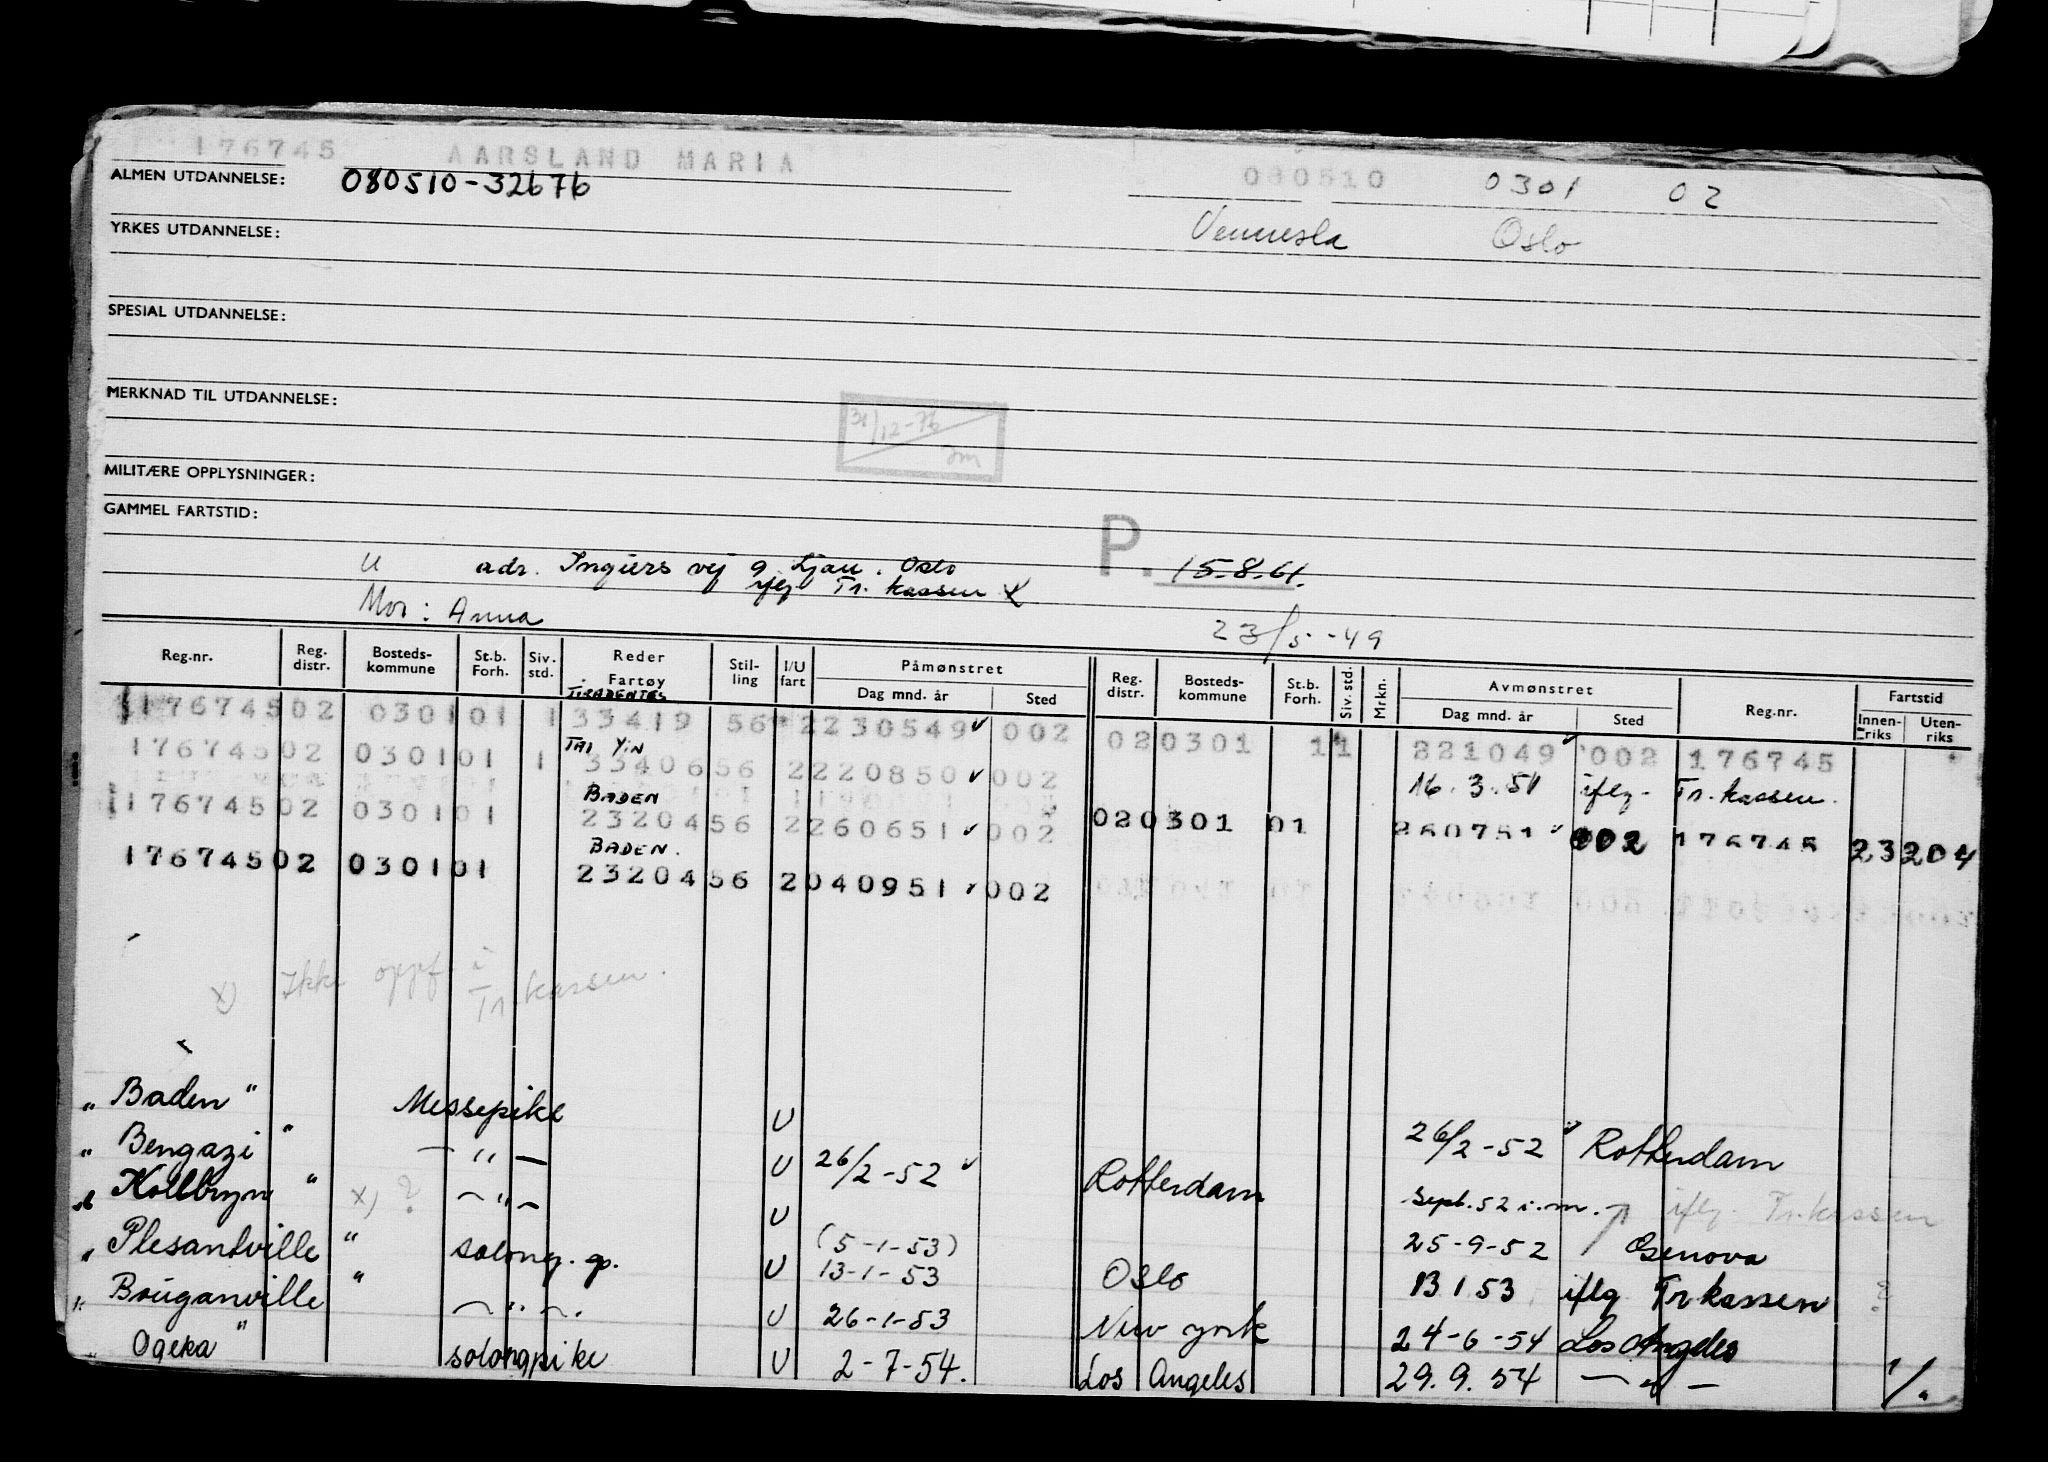 176745 AARSLAND MARIA 080510 0301 02
ALMEN UTDANNELSE: 080510-32676
Vennesla Oslo
YRKES UTDANNELSE:
SPESIAL UTDANNELSE:
MERKNAD TIL UTDANNELSE:
31/12-76
MILITÆRE OPPLYSNINGER:
GAMMEL FARTSTID:
P. 15.8.61.
U adr. Ingiers vej 9 Ljan. Oslo
iflg Tr. kassen
Mor: Anna
23/5-49
Reg.nr. Reg. distr. Bosteds-kommune St.b. Forh. Siv. std. Reder Fartøy Stil-ling I/U fart Påmønstret Dag mnd. år Sted Reg. distr. Bosteds-kommune St.b. Forh. Siv. std. Mrkn. Avmønstret Dag mnd. år Sted Reg.nr. Fartstid Innen-riks Uten-riks
TIRADENTES
176745 02 0301 01 1 33419 56 2 230549 002 02 0301 1 1 221049 002 176745
TAI YIN
176745 02 0301 01 1 33406 56 2 220850 002 16.3.51 iflg. Tr. kassen.
BADEN
176745 02 0301 01 23204 56 2 260651 002 02 0301 01 260751 002 176745 23204
BADEN.
176745 02 0301 01 23204 56 2 040951 002
x) Ikke oppf. i
Tr. kassen.
„ Baden " Messepike U 26/2-52 Rotterdam
„ Bengazi " — „ — U 26/2-52 Rotterdam Sept. 52 i.m. iflg. Tr. kassen
„ Kollbryn " x) ? — „ — U 25-9-52 Genova
„ Plesantville " salong. p. U (5-1-53) 13-1-53 Oslo 13 1 53 iflg Tr kassen ?
„ Bouganville " — „ —. U 26-1-53 New york 24-6-54 Los Angeles
„ Ogeka " salongpike U 2-7-54. Los Angeles 29.9.54 — „ —